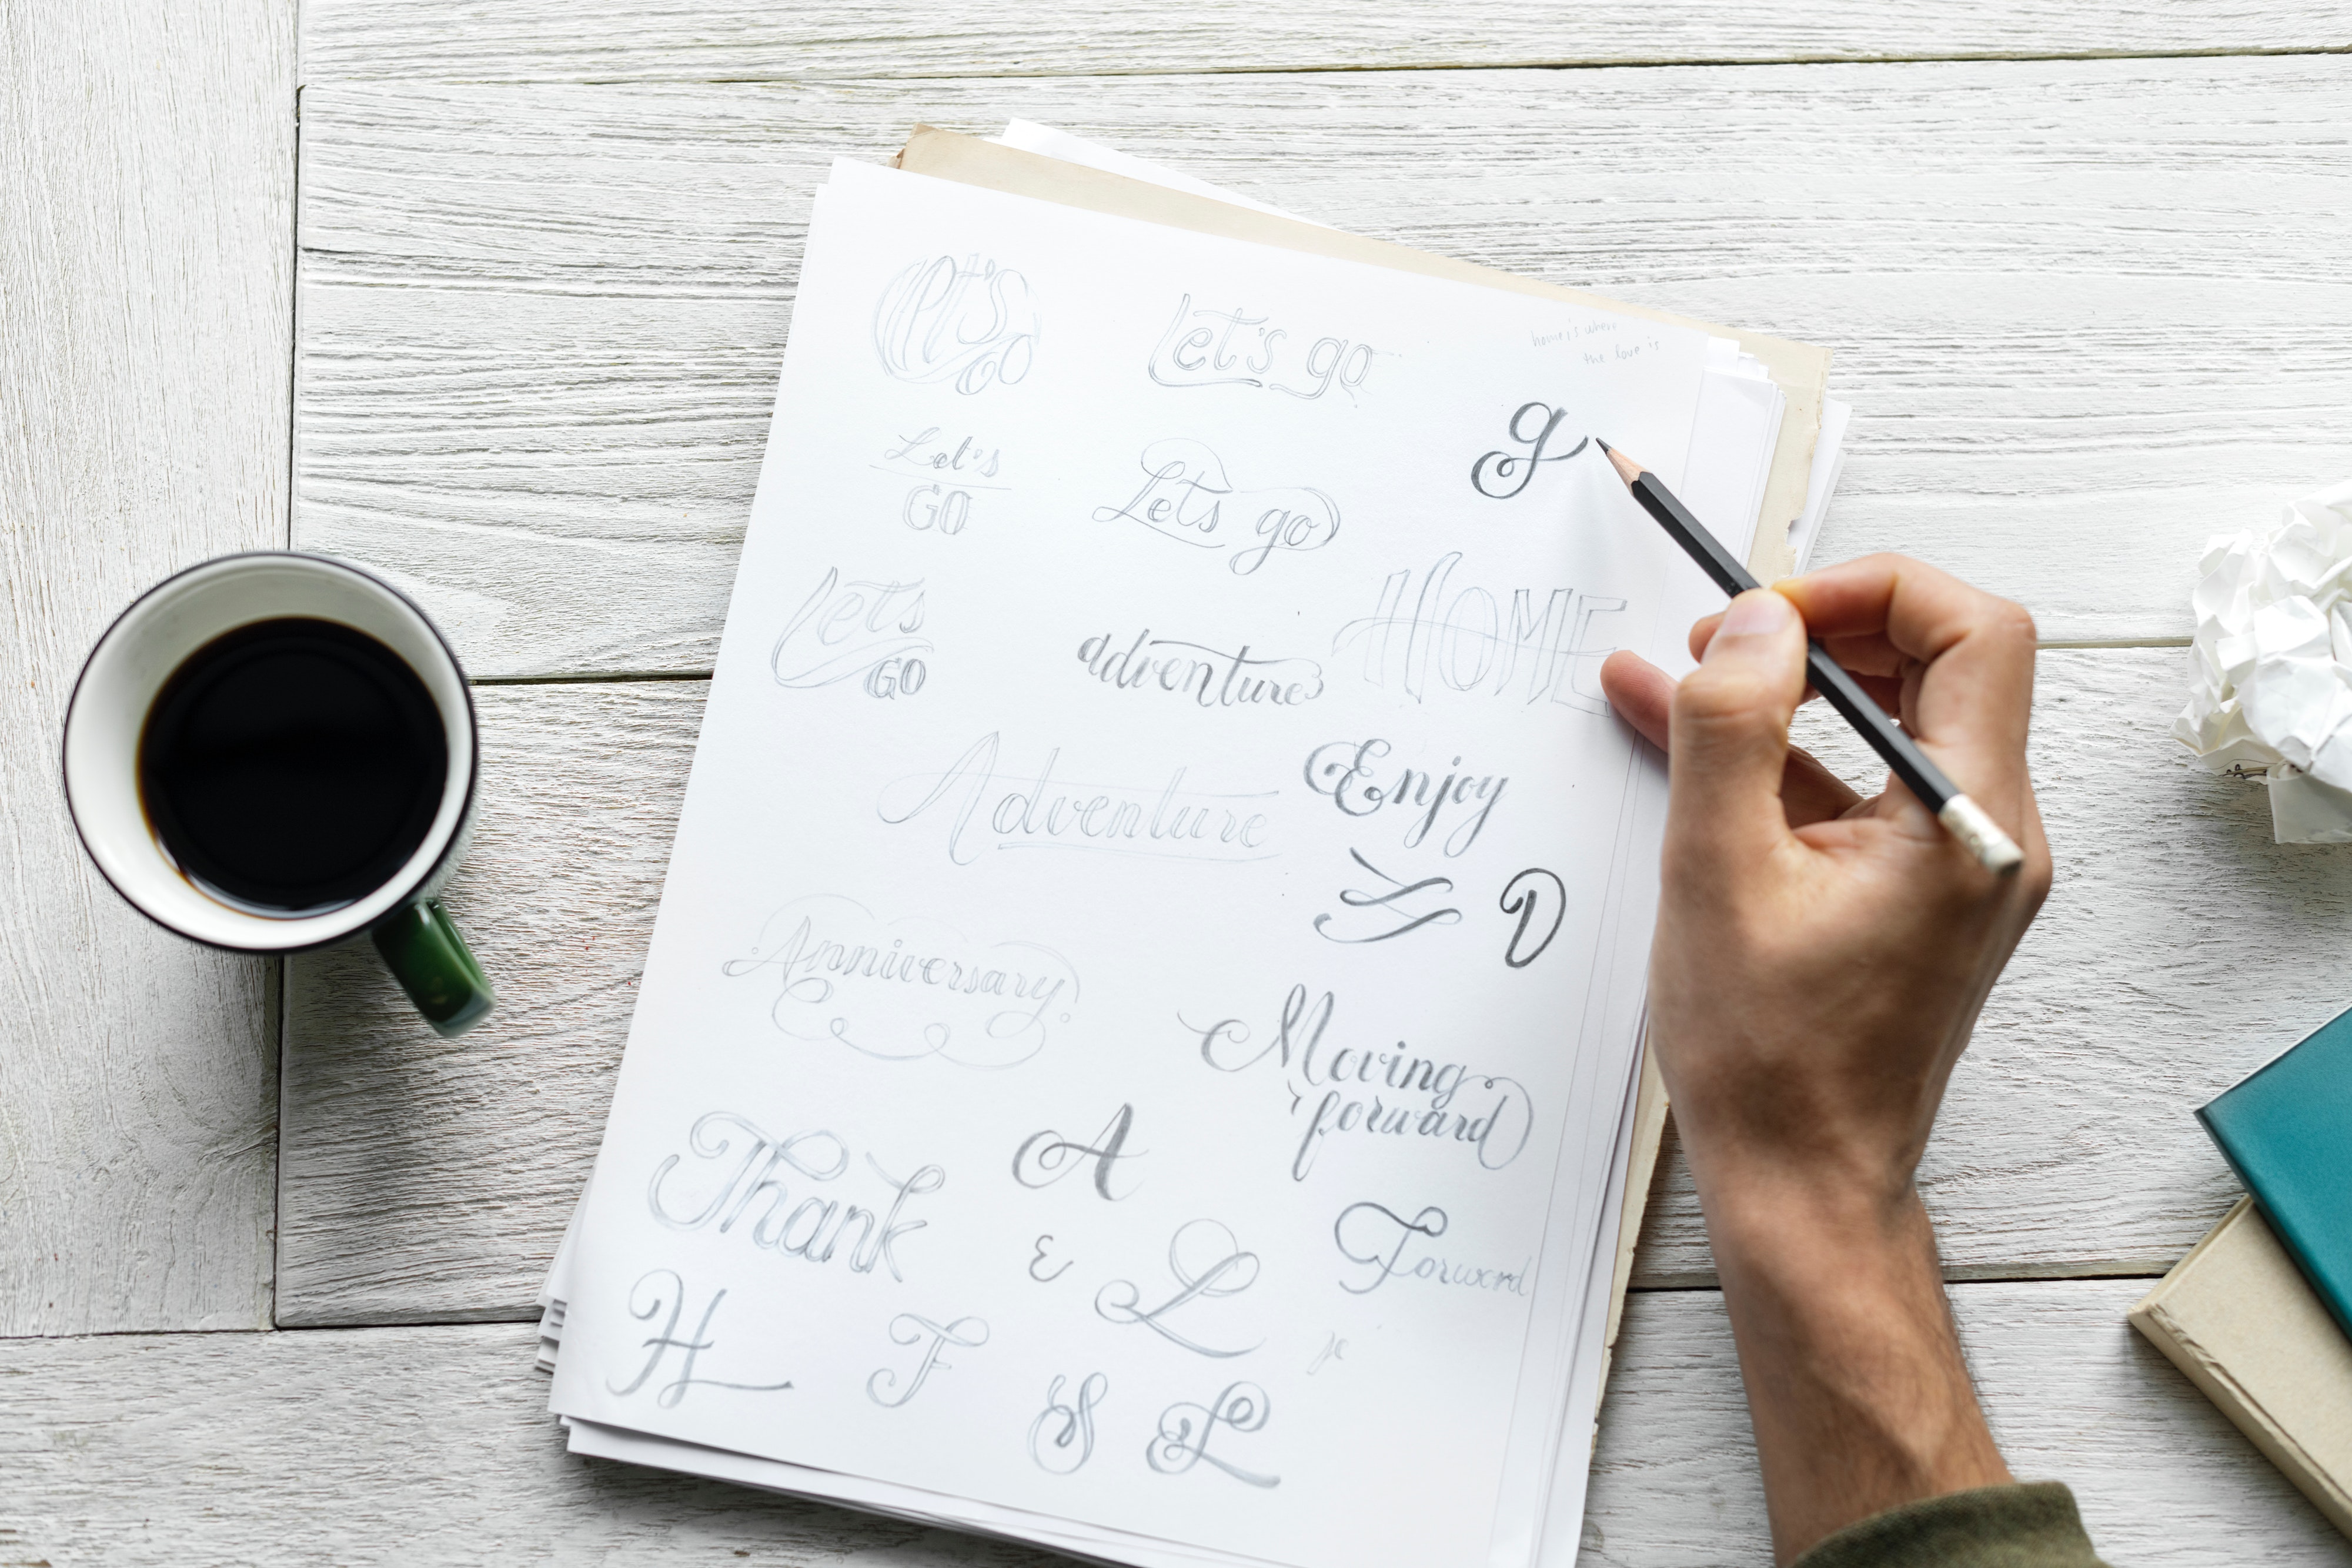 Let's
GO
Let's go
home is where
the love is
g
Let's
GO
Lets go
Lets
GO
adventure
HOME
Adventure
Enjoy
D
Anniversary
Moving
forward
Thank
A
&
L
Forword
H
F
S
L